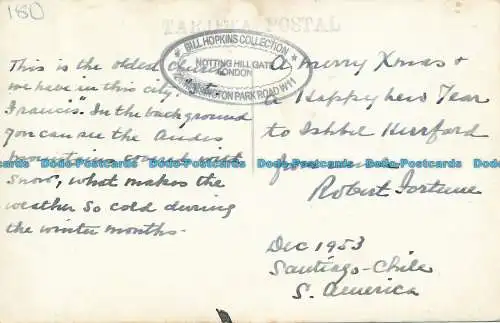 180
TARJETA POSTAL
BILL HOPKINS COLLECTION
NOTTING HILL GATE
LONDON
KENSINGTON PARK ROAD W11
This is the oldest church
we have in this city.
Francis". In the background
you can see the Andes
snow", what makes the
weather so cold during
the winter months.
A merry Xmas &
a Happy New Year
to Ishbel Herford
from
Robert Fortune
Dec 1953
Santiago-Chile
S. America
Dodo-Postcards Dodo-Postcards Dodo-Postcards Dodo-Postcards Dodo-Postcards